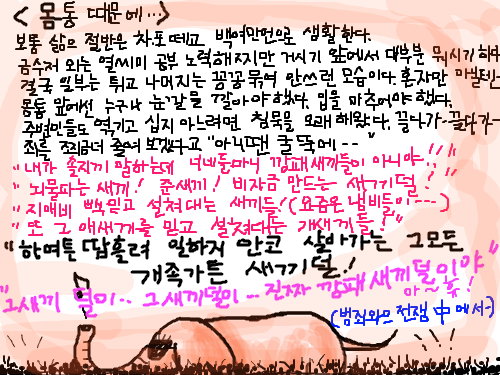 < 몸통 때문에… >
보통 삶으 절반은 차포 떼고 백여만먼으로 생활한다.
금수저 외는 열씨미 공부 노력해지만 거시기 앞에서 대부분 뭐시기 하다
결국 일부는 튀고 나머지는 꽁꽁 묶여 안쓰런 모습이다. 혼자만
몸통 앞에선 누구나 눈깔을 깔아야했다. 입을 마추어야 했다.
주변인들도 엮기고 십지 아느려면 침묵을 오래해왔다. 끌다가-끌다가-
죄를 쪼리라더 줄여 보겠다고 "아니땐 굴뚝에--"
"내가 솔직끼 말하는데 너네들마니 깡패새끼들이 아니야!!"
"뇌물파는 새끼! 준새끼! 비자금 만드는 새끼덜!"
"지애비 빽믿고 설쳐대는 새끼들! (요즘은 냄비들이---)
"또 그 애새끼를 믿고 설쳐대는 개새끼들!"
"하여튼 땀흘려 일하지 안코 살아가는 그모든
개족가튼 새끼덜!
"그새끼 덜이.. 그새끼덜이... 진짜 깡패새끼덜이야"
(범죄와으 전쟁 中에서-)